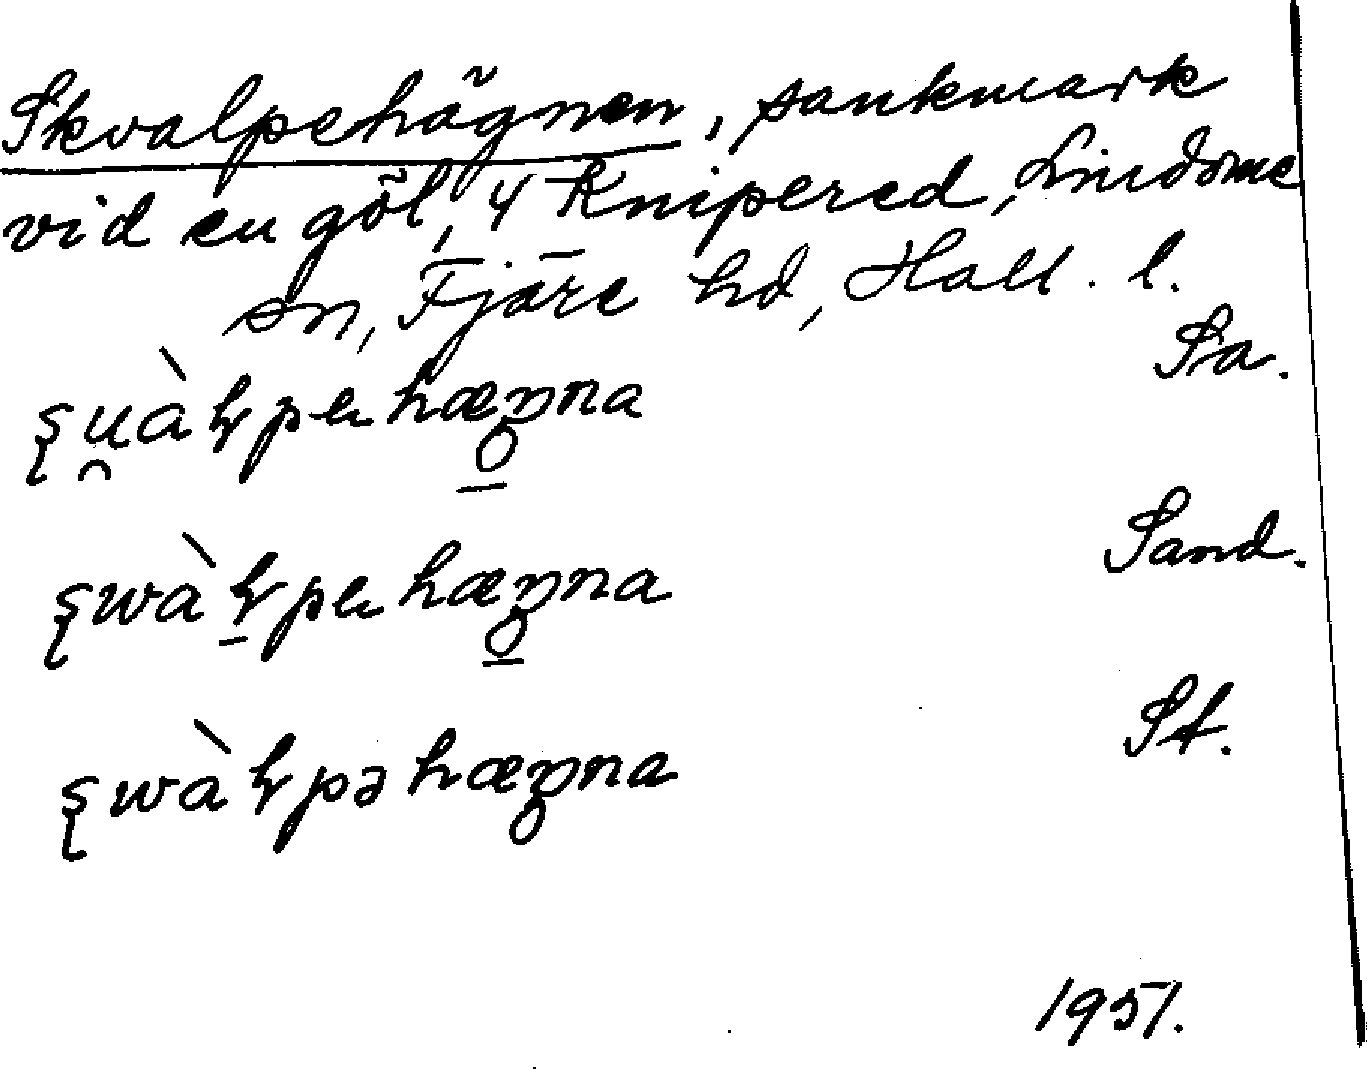 Skvalpehägnen, sankmark
vid en göl, 4 Knipered, Lindome
sn, Fjäre hd, Hall. l.
Sa.
Sand.
St.
1951.